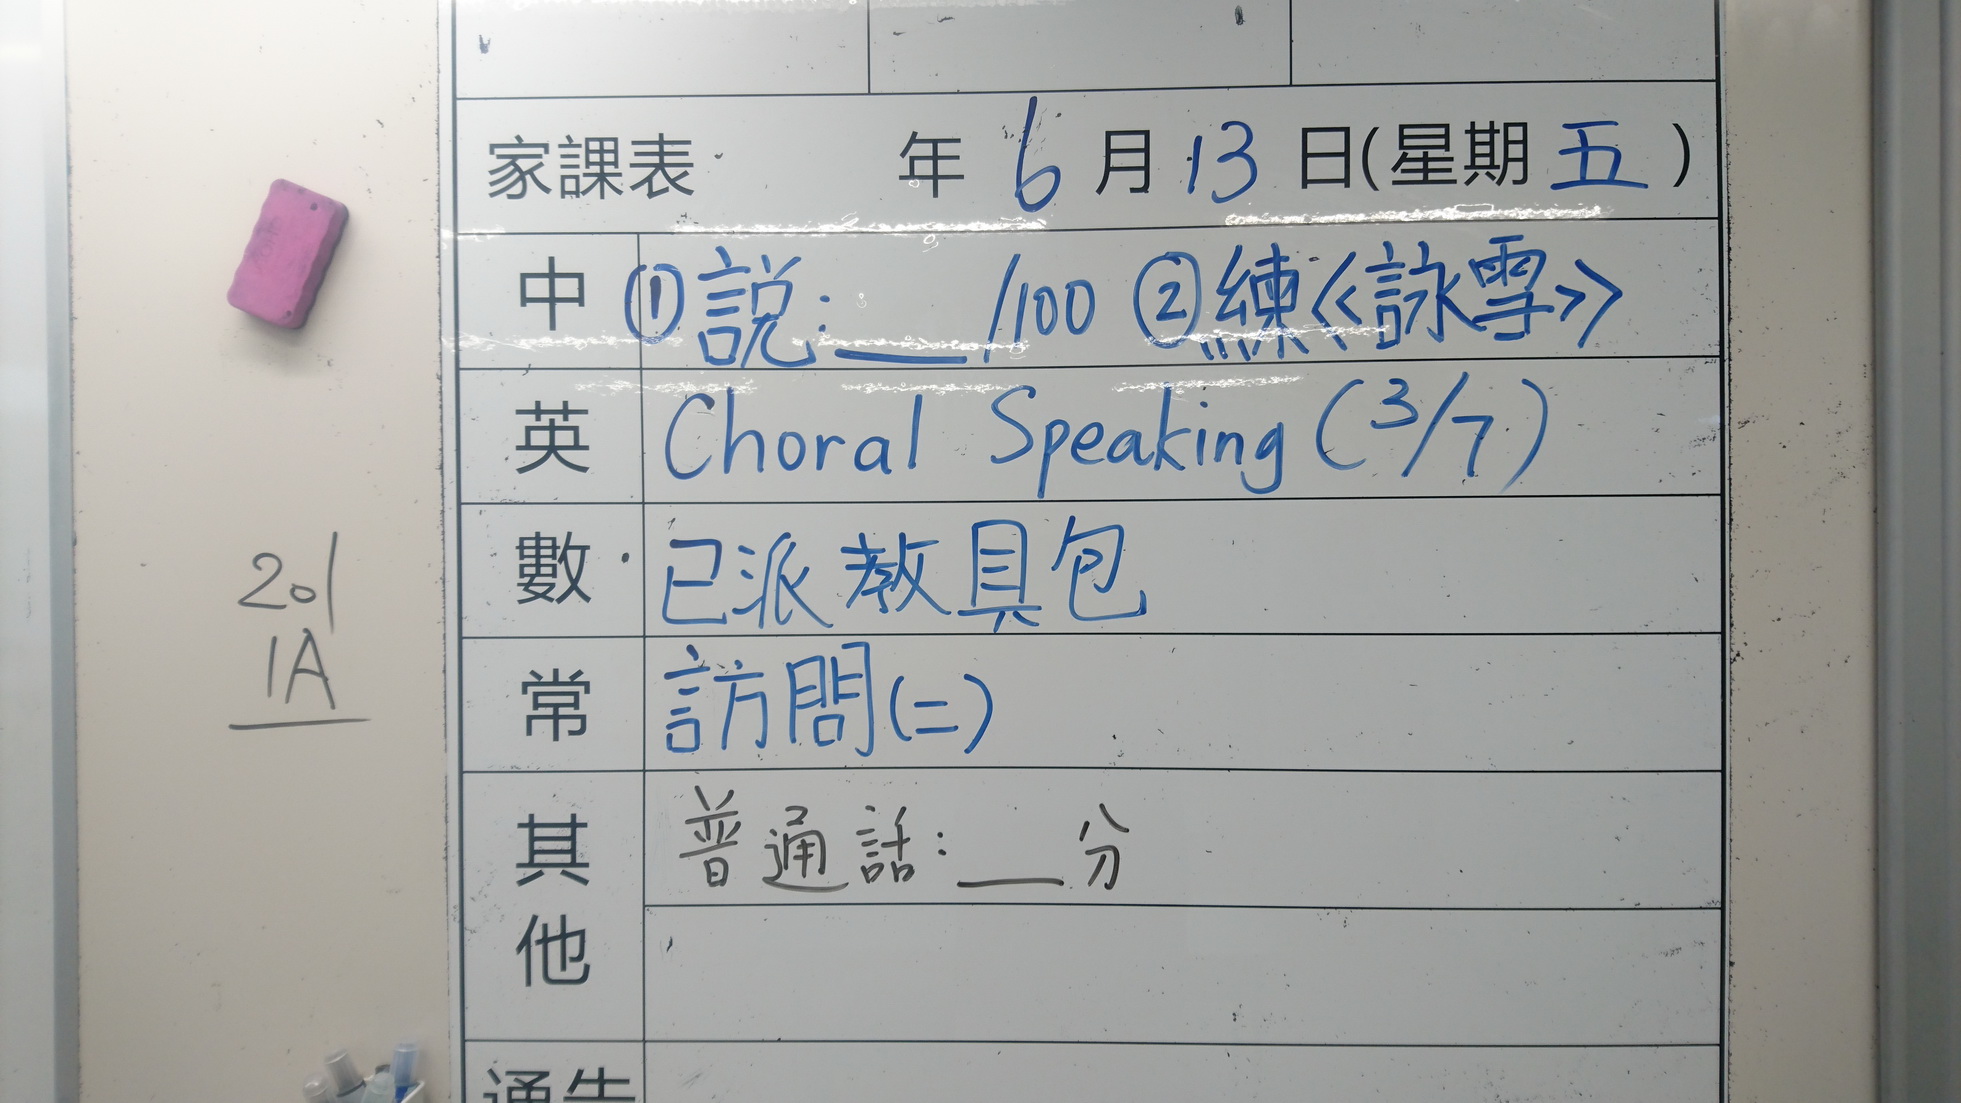 家課表 年 6 月 13 日(星期 五 )
中 ①説:__/100 ②練《詠雪》
英 Choral Speaking (3/7)
數 已派教具包
常 訪問(二)
其他 普通話:__分
通告
201
1A